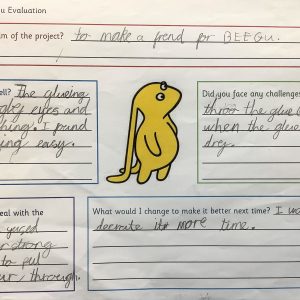 u Evaluation
im of the project? to make a frend for BEEGU.
ell? The glueing
eyes and
hing. I
ing easy.
Did you face any challenges
the glue
when the glue
drey.
eal with the
strong
to put
through.
What would I change to make it better next time? I
it more time.